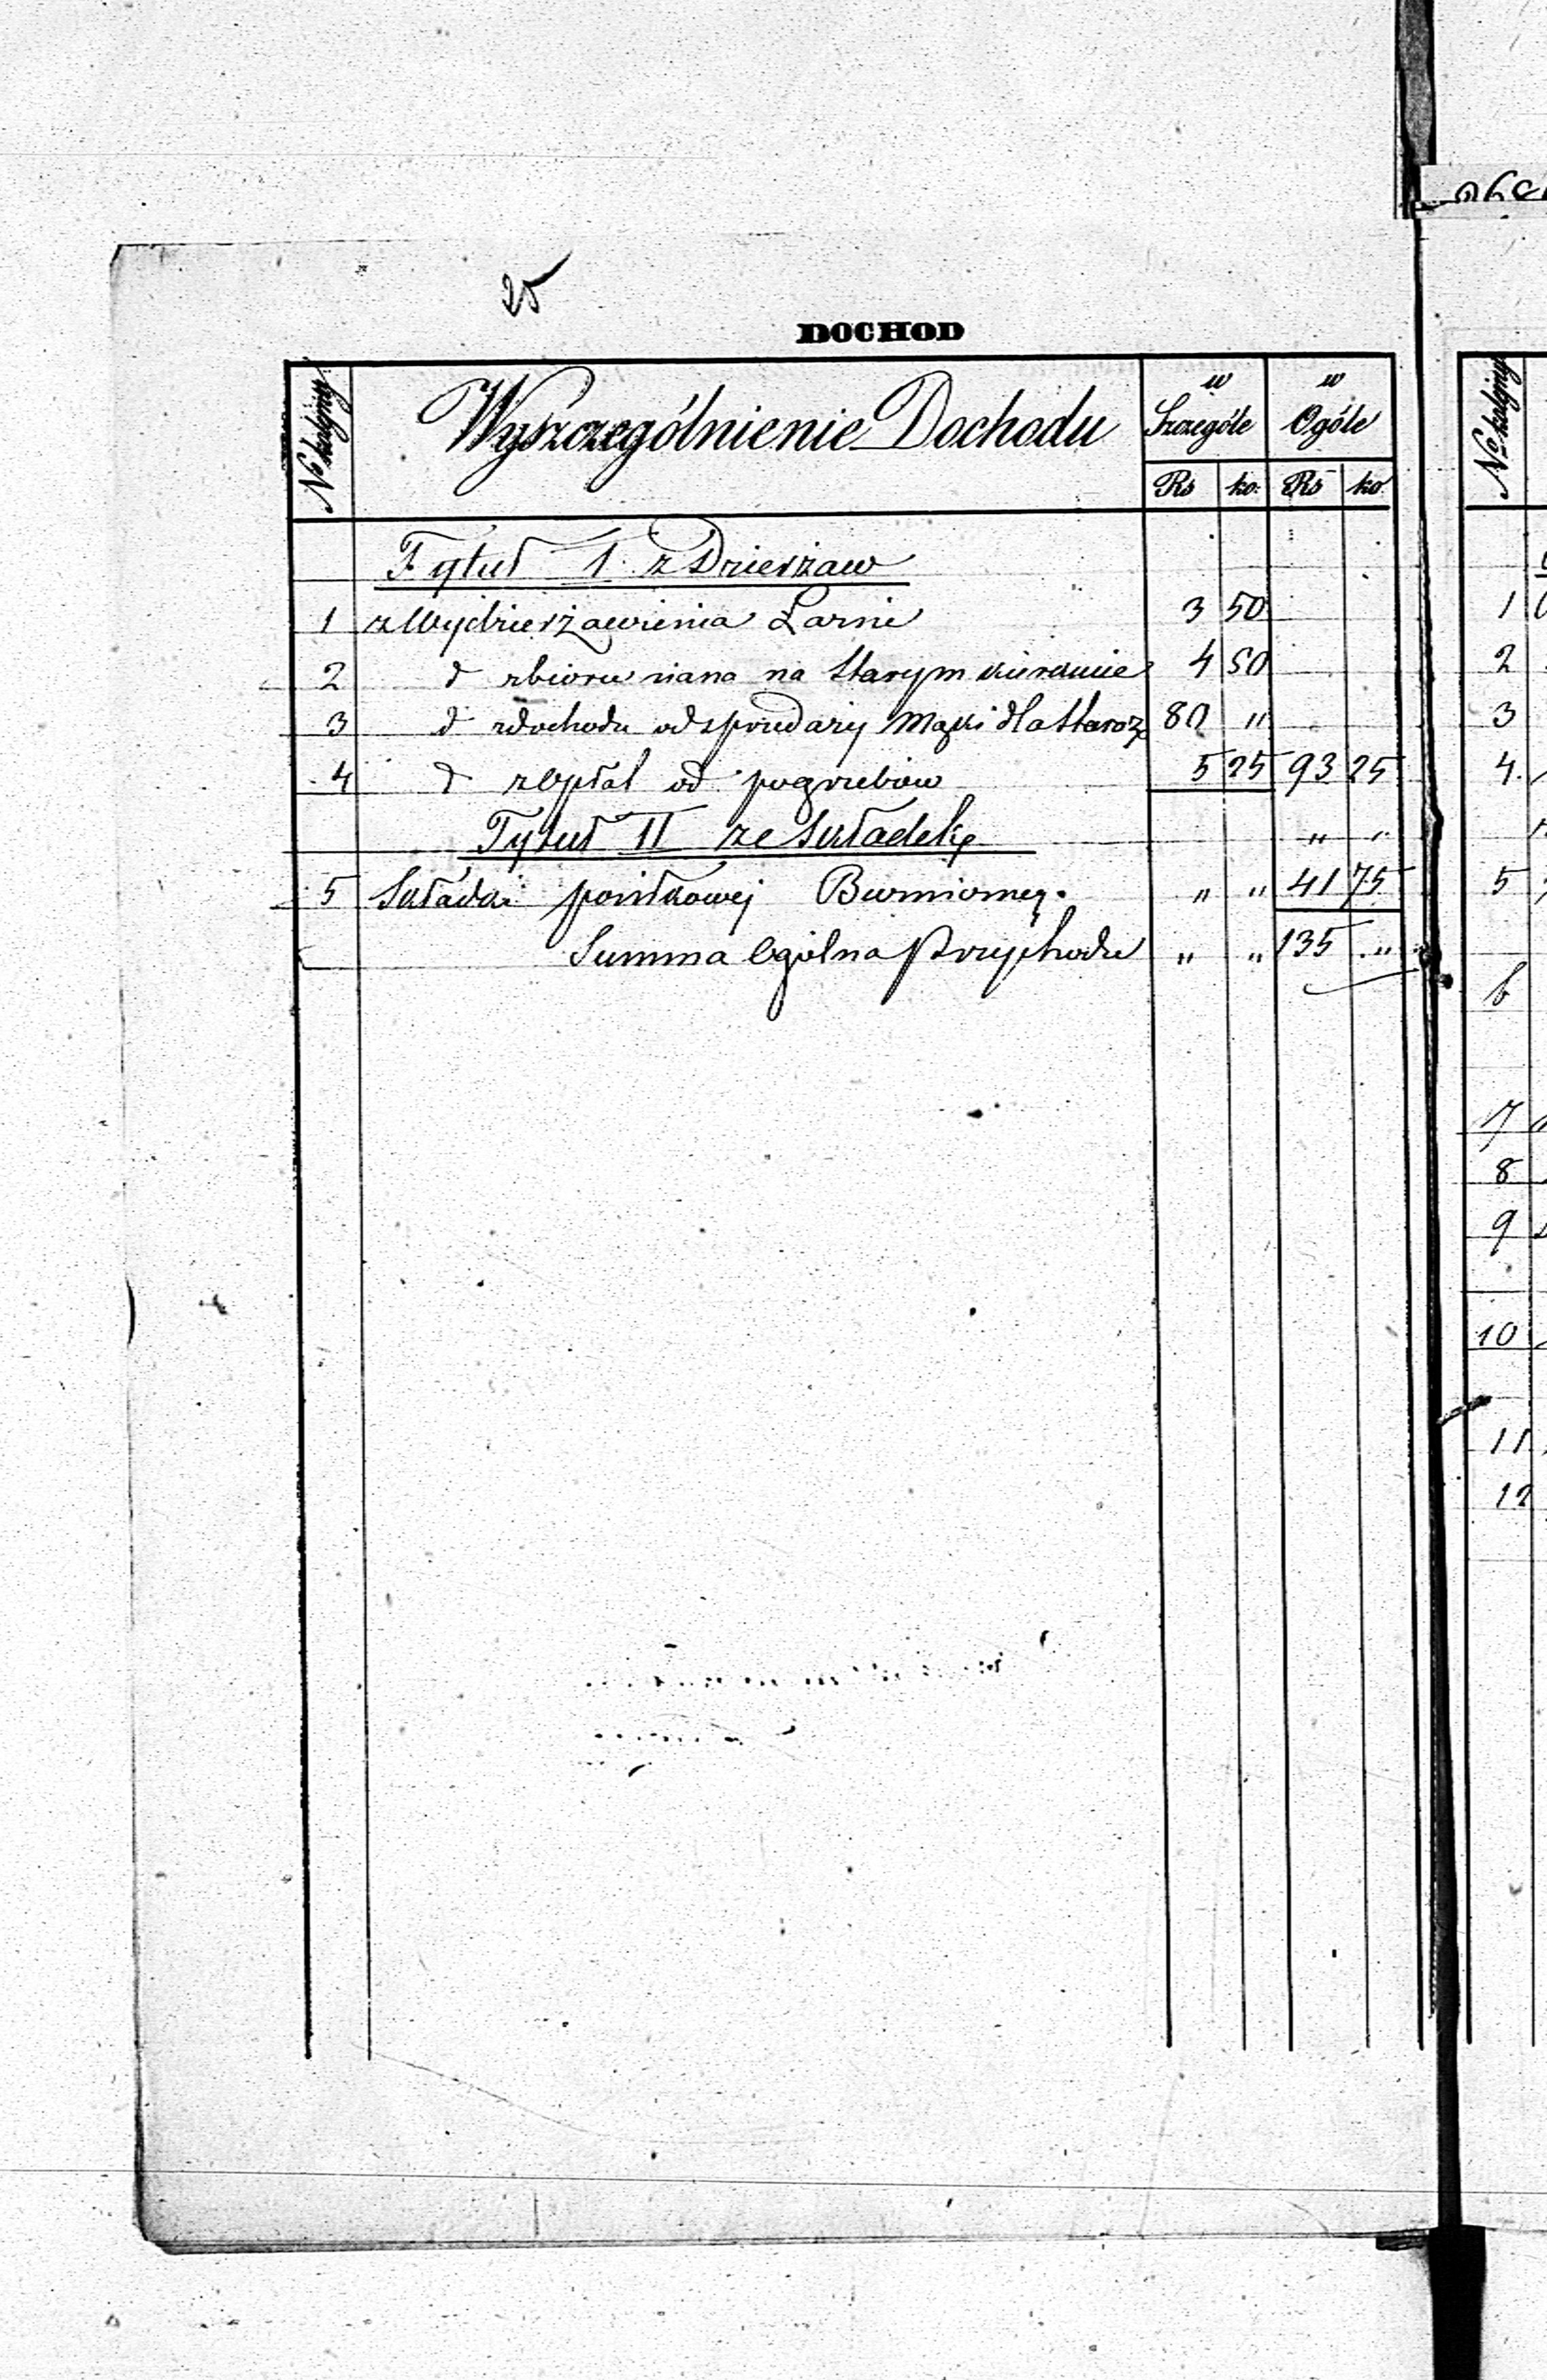 25
DOCHOD
No kolejny Wyszczególnienie Dochodu w Szczególe w Ogóle
Rs ko. Rs ko.
Tytuł I. z Dzierżaw
1 z Wydzierżawienia Łazni 3 50
2 d zbioru siana na Starym 4 50
3 d zdochodu od sprzedaży Mąki dla Staroz. 80 "
4 d zopłat od pogrzebów 5 25 93 25
Tytuł II ze Składek " "
5 Składki Bumiomej. " " 41 75
Summa Ogólna Przychodu " " 135 "
No kolejny
1
2
3
4.
5
6
7
8
9
10
11
12